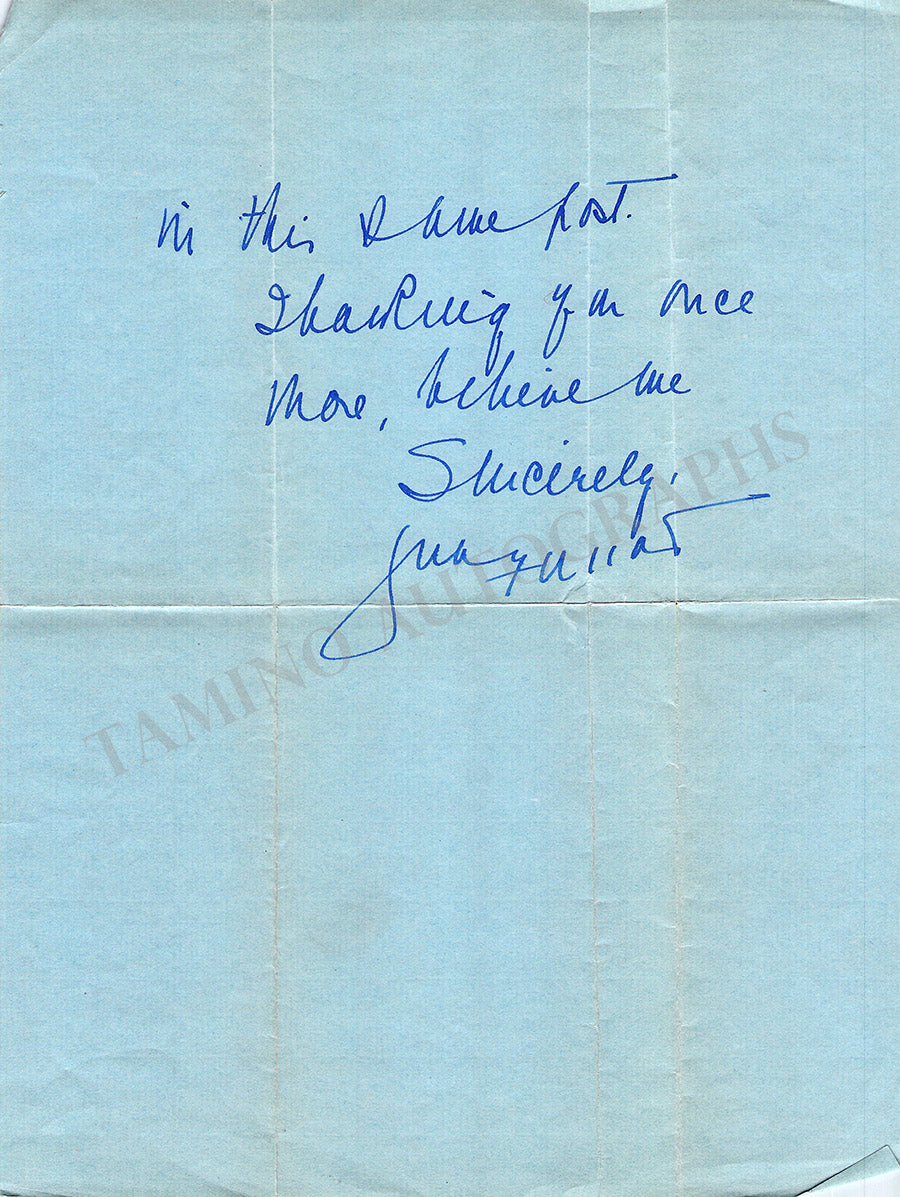 in this same post.
Thanking you once
more, believe me
Sincerely,
TAMINO AUTOGRAPHS